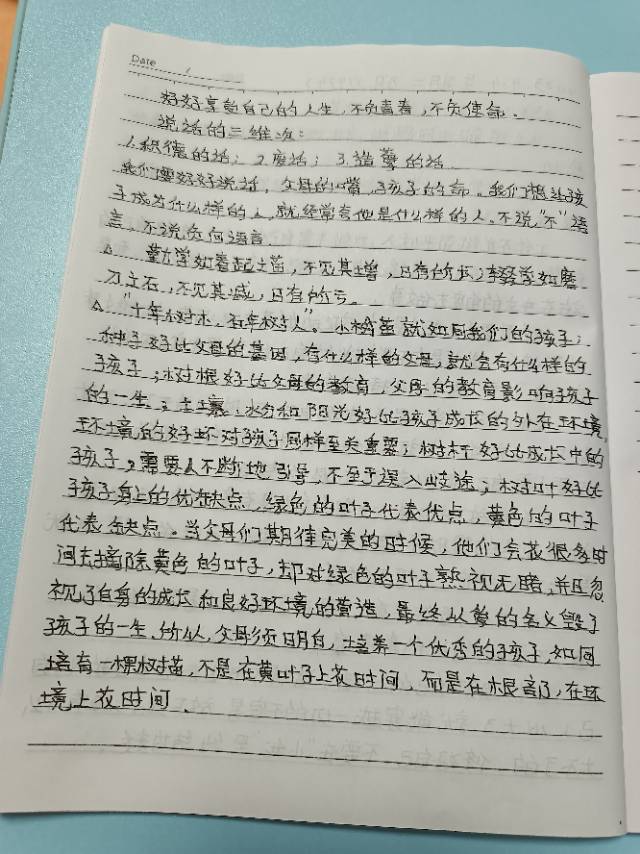 Date
好好享受自己的人生，不负青春，不负使命。
说话的三维次：
1.积德的话；2.废话；3.造孽的话
我们要好好说话，父母的嘴，孩子的命。我们想让孩
子成为什么样的人，就经常夸他是什么样的人。不说“不”语
言，不说负向语言
勤学如春起之苗，不见其增，日有所长；辍学如磨
刀之石，不见其减，日有所亏。
“十年树木，百年树人”。小树苗就如同我们的孩子；
种子好比父母的基因，有什么样的父母，就会有什么样的
孩子；树根好比父母的教育，父母的教育影响孩子
的一生；土壤，水分和阳光好比孩子成长的外在环境，
环境的好坏对孩子同样至关重要；树杆好比成长中的
孩子，需要人不断地引导，不至于误入歧途；树叶好比
孩子身上的优缺点，绿色的叶子代表优点，黄色的叶子
代表缺点。当父母们期待完美的时候，他们会花很多时
间去摘除黄色的叶子，却对绿色的叶子熟视无睹，并且忽
视了自身的成长和良好环境的营造，最终以爱的名义毁了
孩子的一生。所以，父母须明白，培养一个优秀的孩子，如同
培育一棵树苗，不是在黄叶子上花时间，而是在根部，在环
境上花时间．